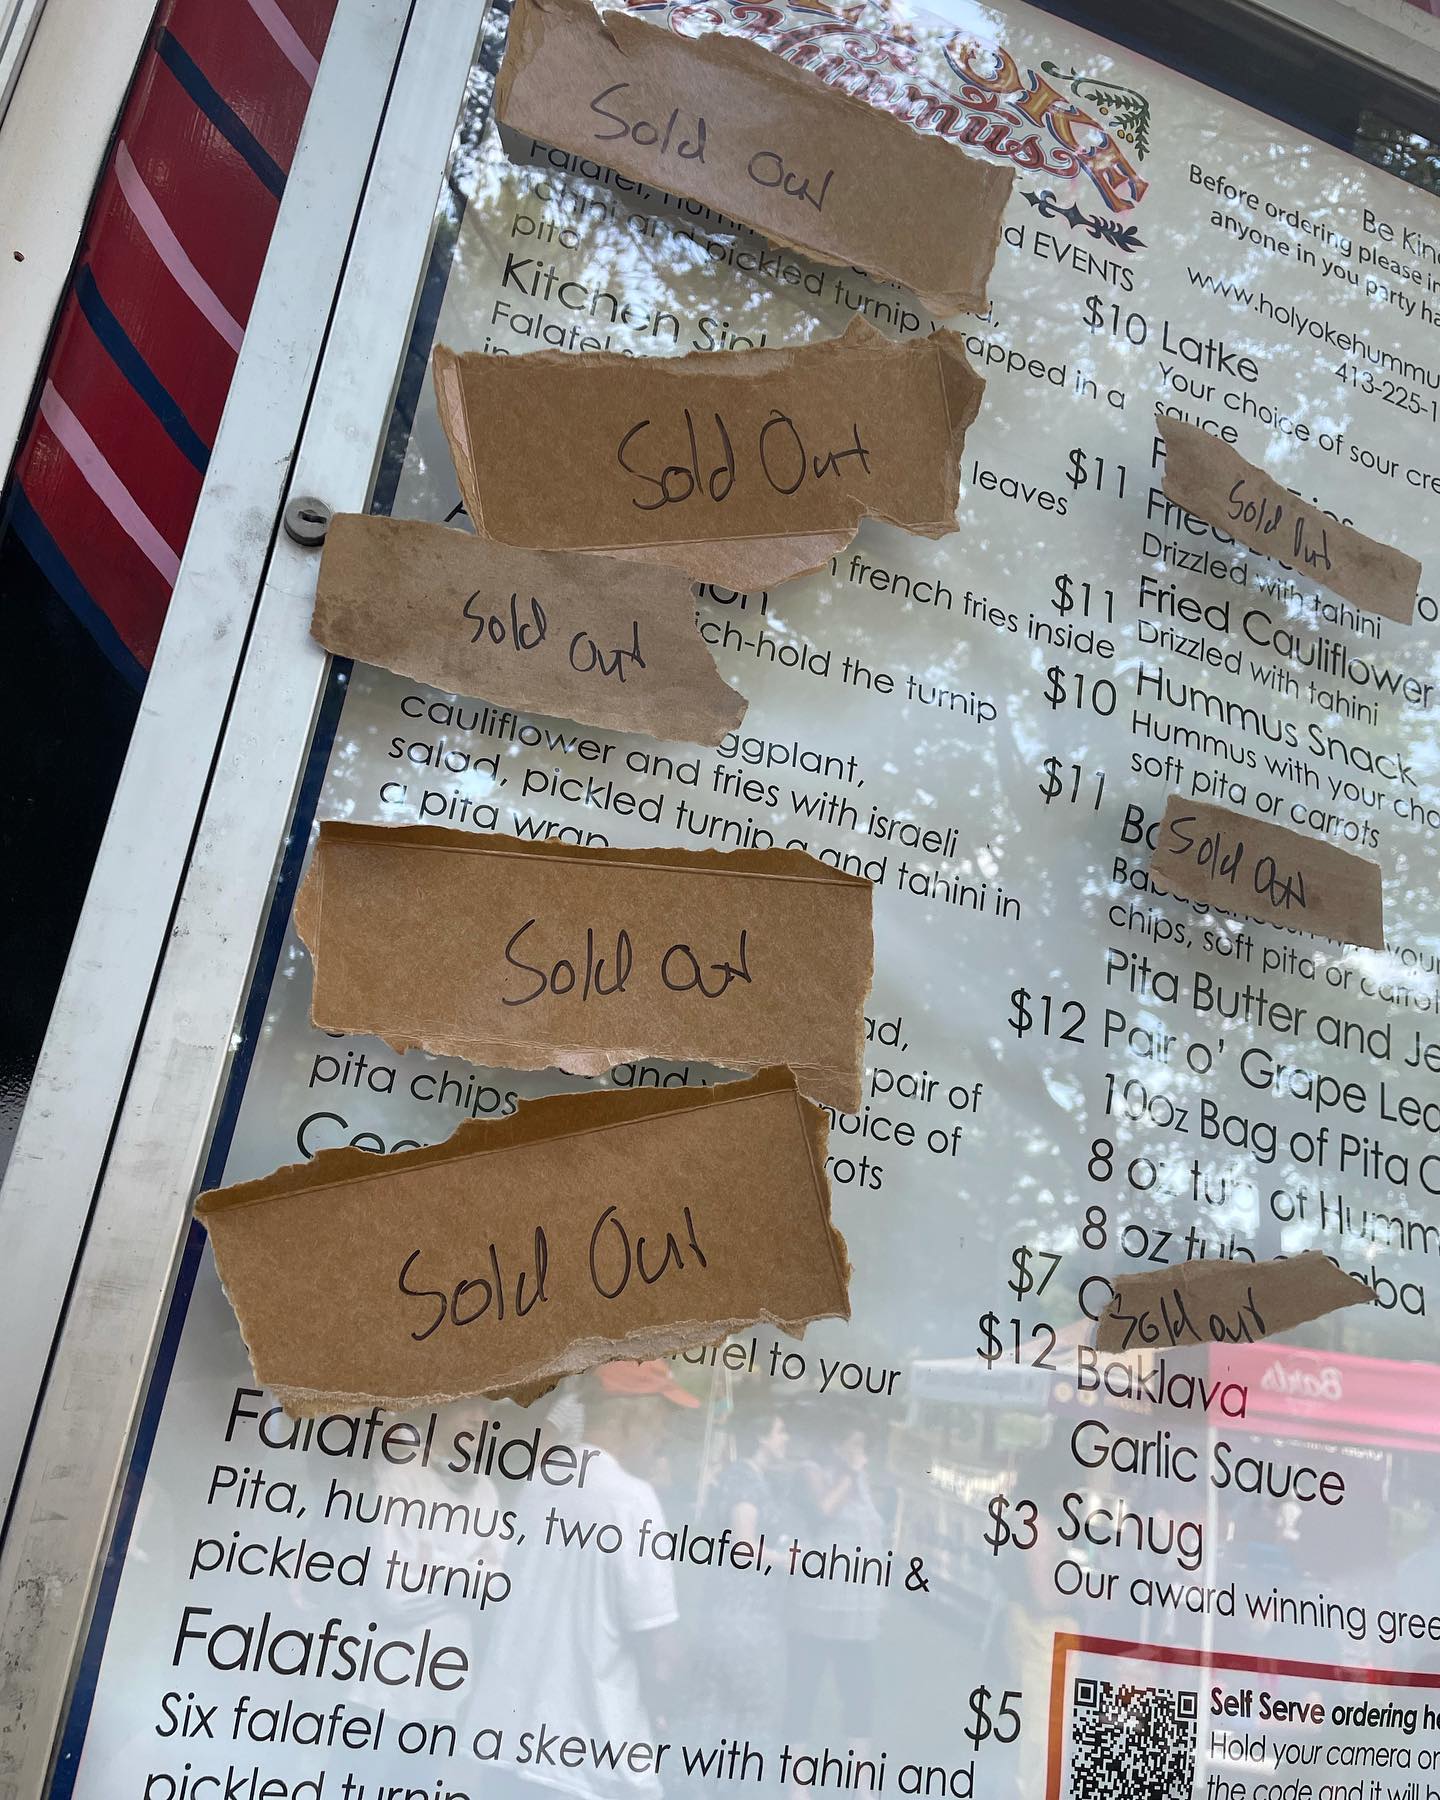 Hummus
Sold Out
d EVENTS
Falafel,
tahini and pickled turnip wrapped in a
pita
Kitchen
$10
Falafel
Sold Out
leaves
$11
french fries inside
$11
Sold out
ich-hold the turnip
$10
ggplant,
$11
cauliflower and fries with israeli
salad, pickled turnip and tahini in
a pita wrap
Sold Out
$12
ad,
and
pair of
pita chips
hoice of
rots
Sold Out
$7
$12
falafel to your
Falafel slider
$3
Pita, hummus, two falafel, tahini &
pickled turnip
Falafsicle
$5
Six falafel on a skewer with tahini and
pickled turnip
Be Kin
Before ordering please in
anyone in you party ha
www.holyokehummu
413-225-1
Latke
Your choice of sour cre
sauce
Sold Out
Fried
Drizzled with tahini
Fried Cauliflower
Drizzled with tahini
Hummus Snack
Hummus with your cho
soft pita or carrots
Sold Out
your
chips, soft pita or carrot
Pita Butter and Je
Pair o' Grape Lea
10oz Bag of Pita C
8 oz tub of Humm
8 oz tub of Baba
Sold out
Baklava
Garlic Sauce
Schug
Our award winning gree
Self Serve ordering he
Hold your camera or
the code and it will b